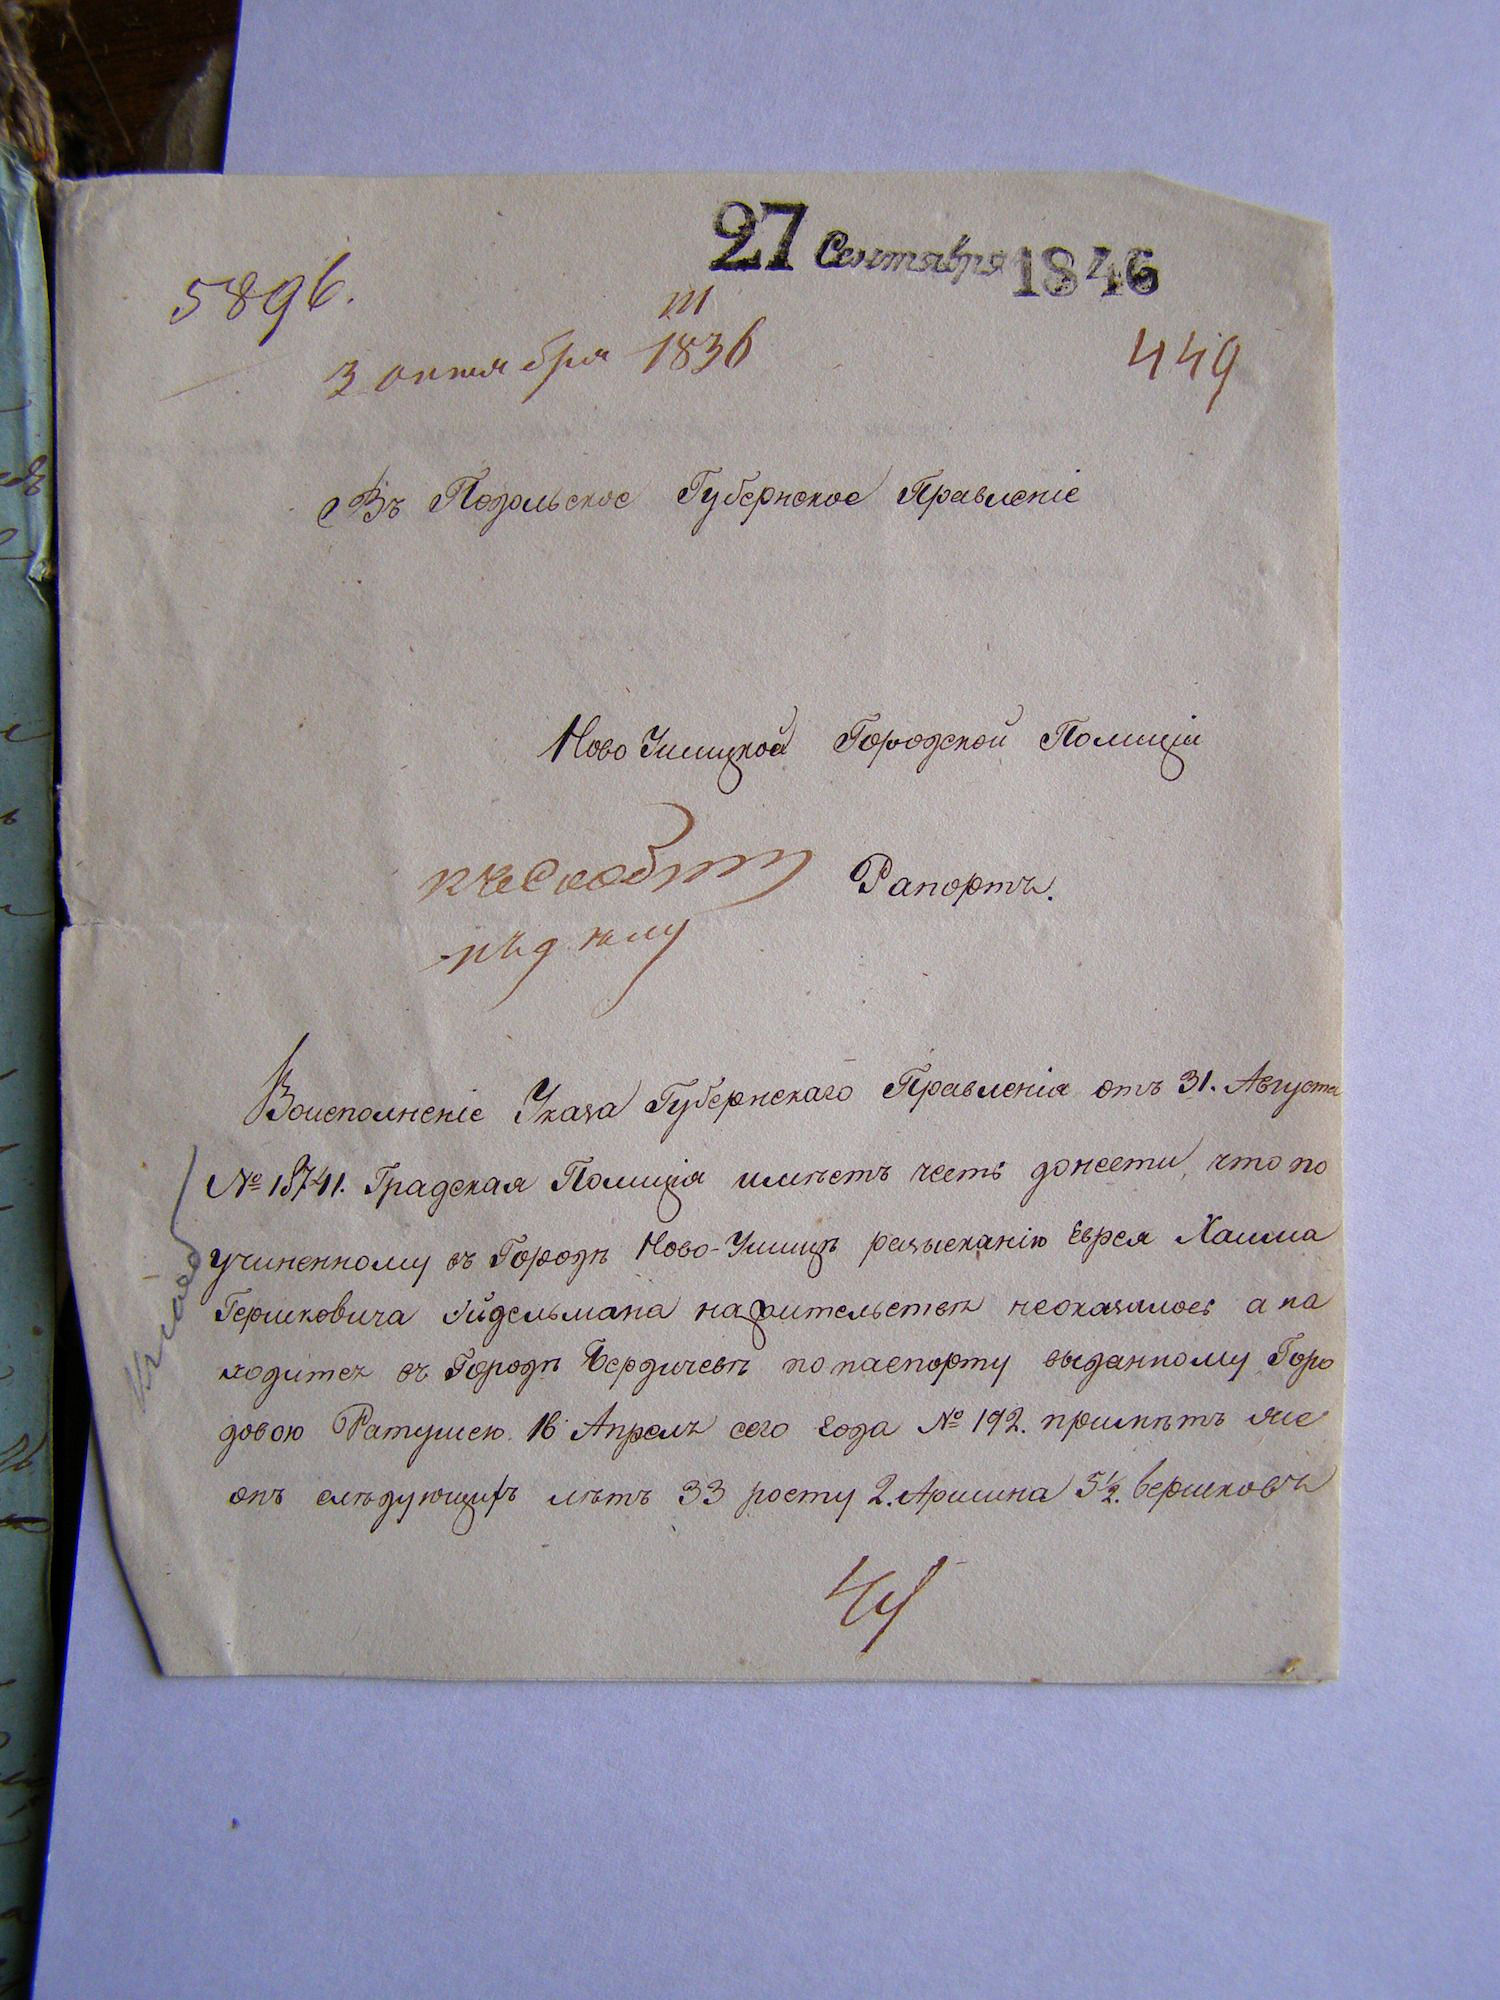 27 Сентября 1846
5896.
3 октября 1836
449
Въ Подольское Губернское Правленіе
Ново Ушицкой Городской Полиціи
Рапортъ.
къ делу
Воисполненіе Указа Губернскаго Правленія отъ 31. Августа
№ 18741. Градская Полиція имѣетъ честь донести, что по
учиненному въ Городѣ Ново-Ушицѣ разысканію Еврея Хаима
Гершковича Эйдельмана нажительствѣ неоказалось а на
ходится въ Городѣ Бердичевѣ по паспорту выданному Горо
довою Ратушею 16 Апреля сего года № 192. примѣтъ же
онъ слѣдующихъ лѣтъ 33 росту 2. Аршина 5½. вершковъ